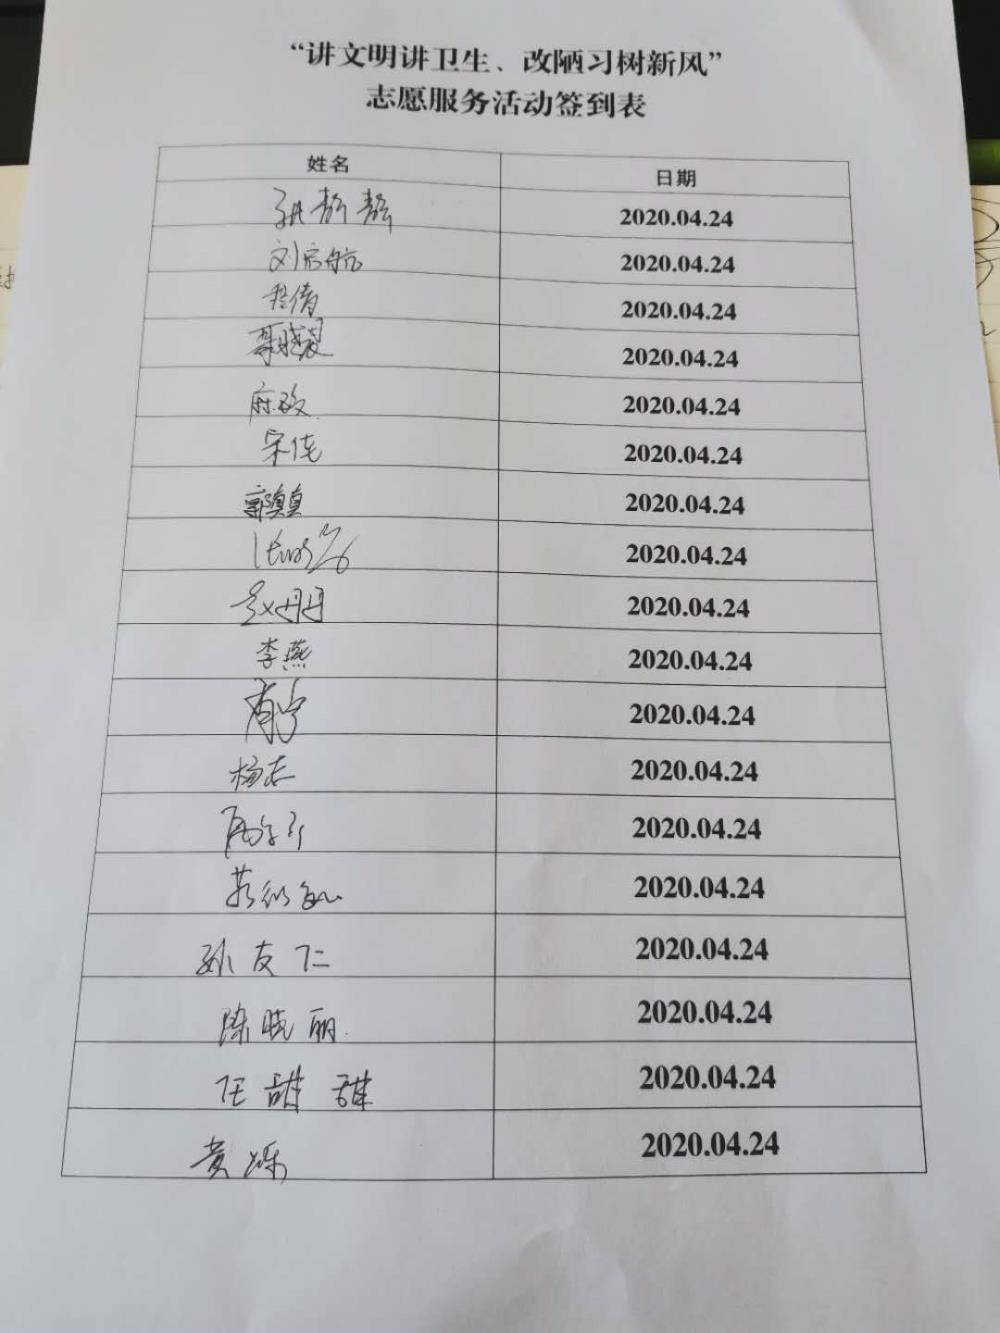 “讲文明讲卫生、改陋习树新风”
志愿服务活动签到表
姓名 日期
静静 2020.04.24
刘启航 2020.04.24
程倩 2020.04.24
2020.04.24
2020.04.24
宋佳 2020.04.24
郭真真 2020.04.24
2020.04.24
赵丹丹 2020.04.24
李燕 2020.04.24
2020.04.24
杨志 2020.04.24
2020.04.24
2020.04.24
孙友仁 2020.04.24
陈晓丽 2020.04.24
任甜甜 2020.04.24
黄烁 2020.04.24